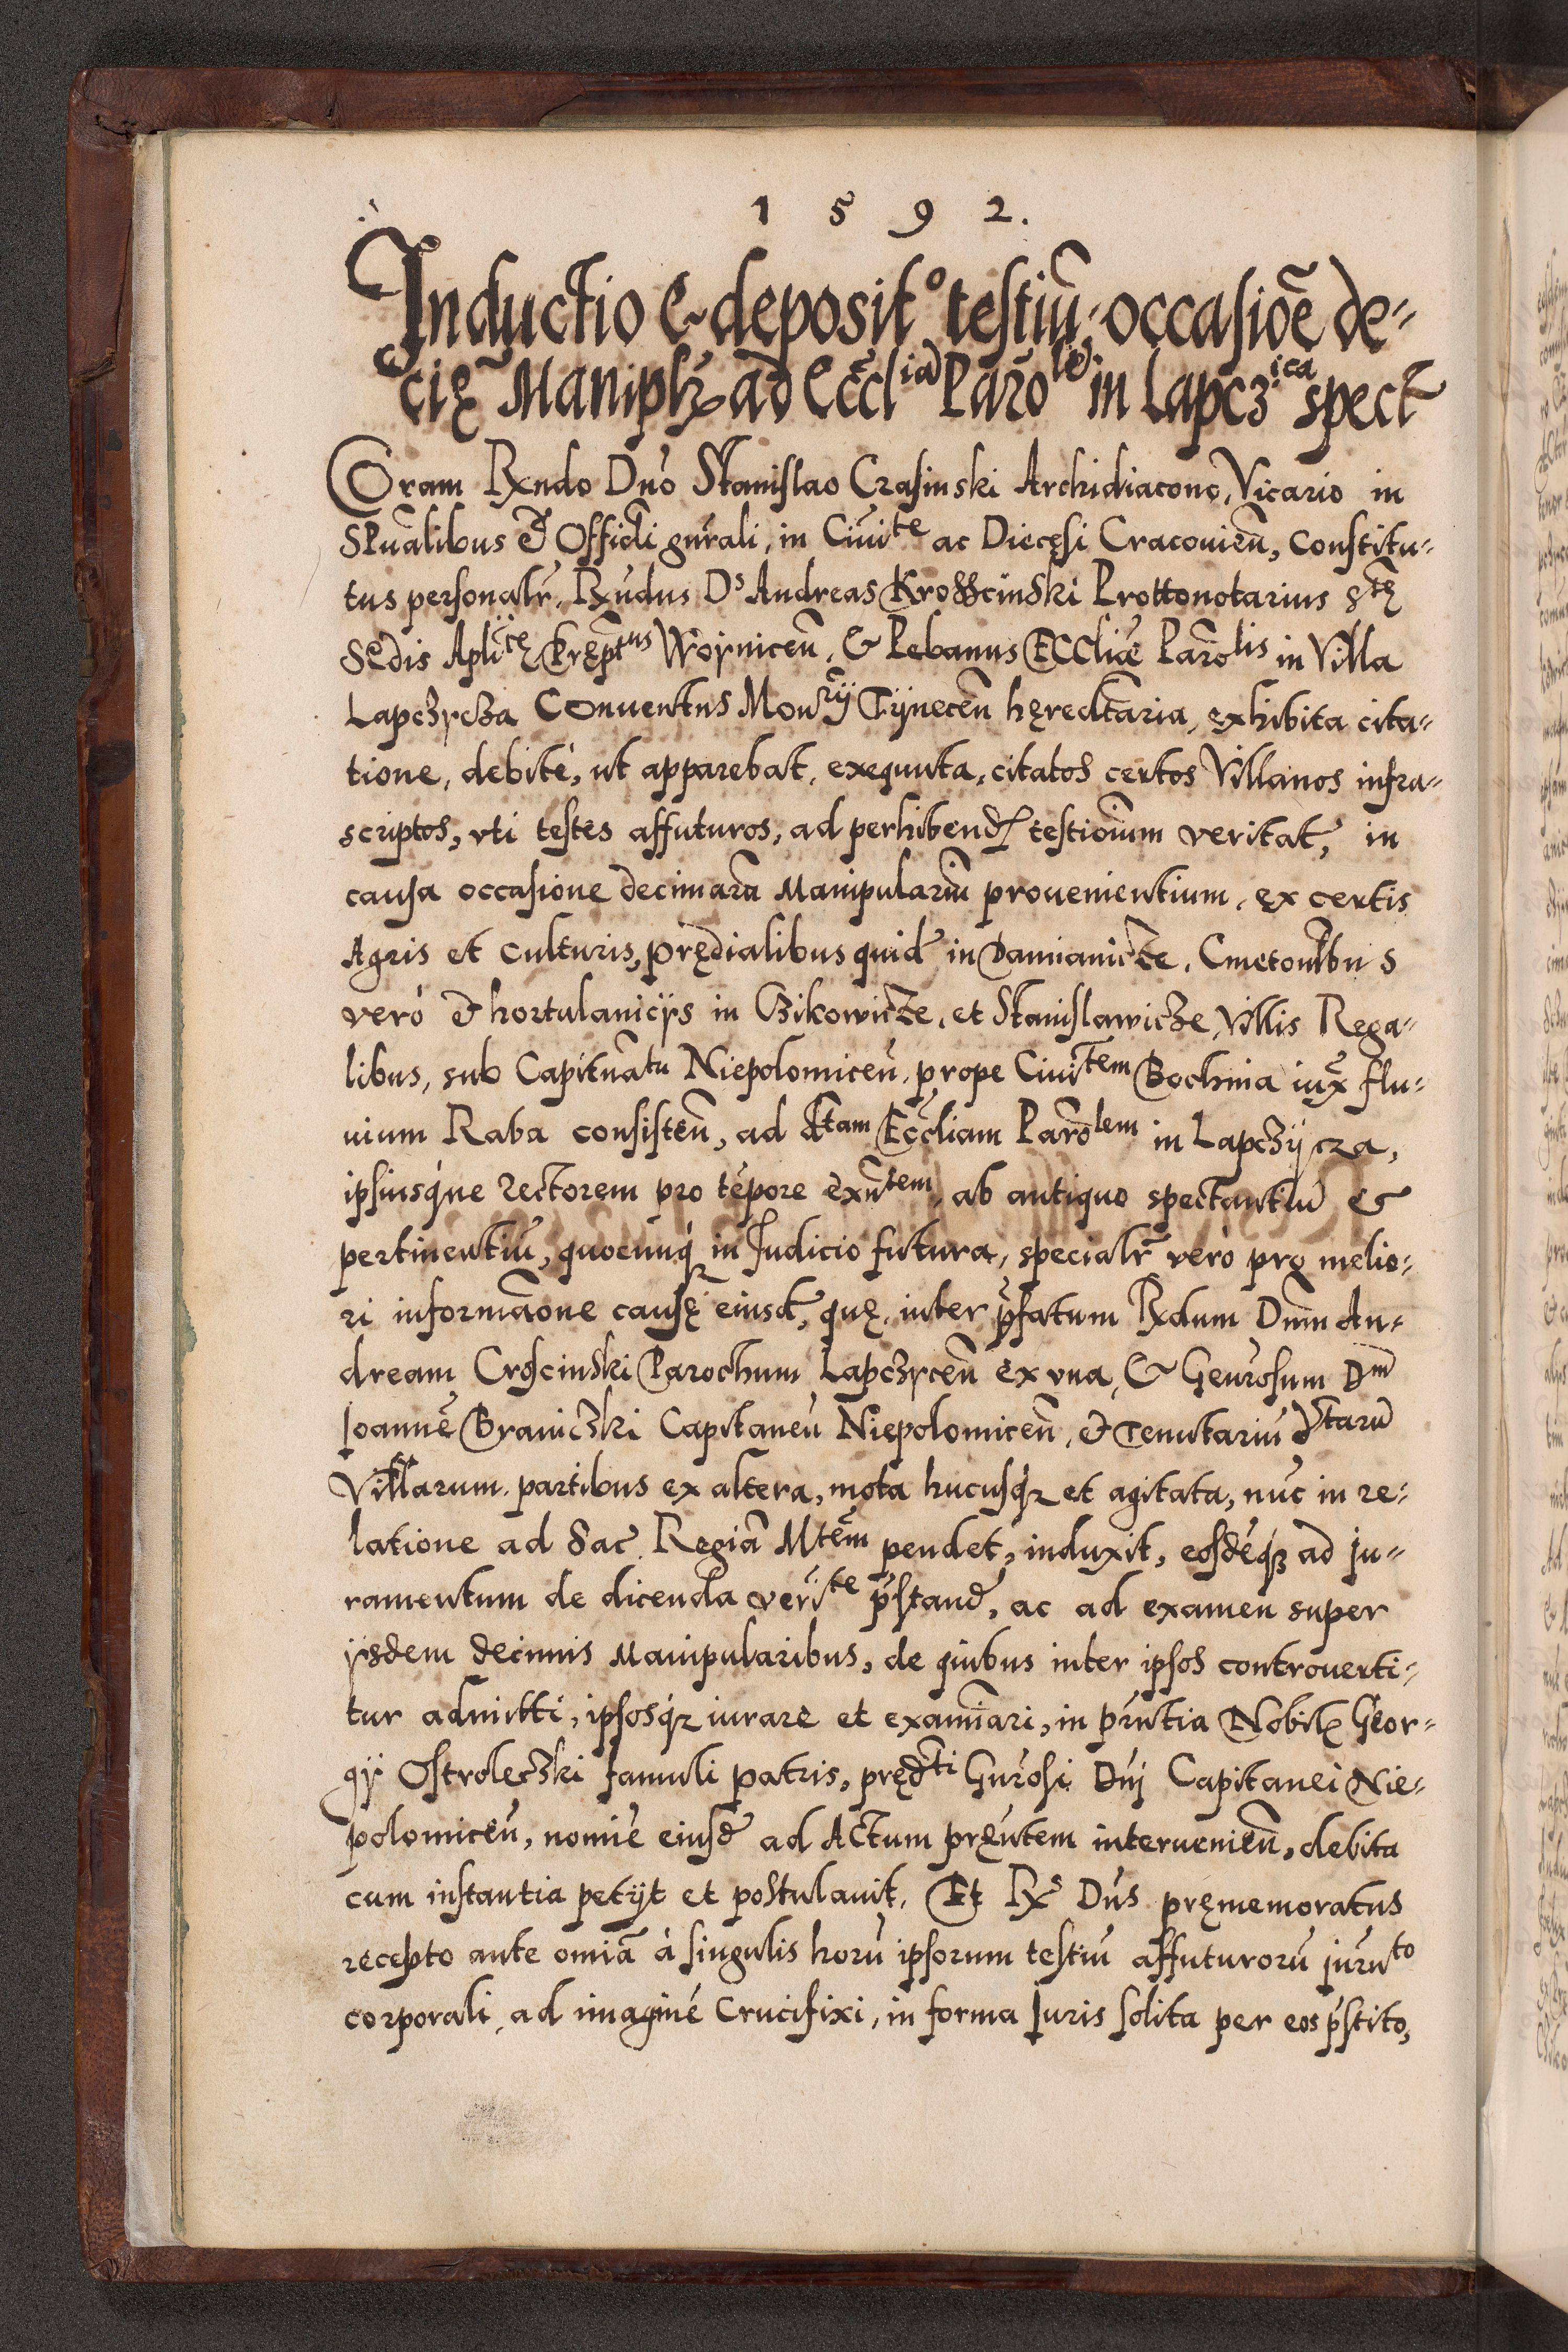 1592.
Inductio & deposit° testiū, occasiōe de-
cię Maniplr̄ ad Eccl̄iā Parō^le in Lapcz^ica spect̄
Coram Rx̄ndo Dn̄o Stanislao Crasinski Archidiacono, Vicario in
Spūalibus & Offici̅li gn̄rali, in Ciui^te ac Diecęsi Cracouien̄, constitu-
tus personalr̄, Rx̄ndus D^s Andreas Krosscinski Prottonotarius S^tę
Sedis Apli^cę Pręp̄t^us Woÿnicen̄, & Plebanus Eccliæ Paro^lis in Villa
Lapczÿcza Conuentus Mon^rÿ Tÿnecen̄ hęredt̄aria, exhibita cita-
tione, debitè, ut apparebat, exequuta, citatos certos Villanos infra-
scriptos, vti testes affuturos, ad perhibend̄ testioīum veritat̄, in
causa occasione decimarū Manipulariū prouenientium, ex certis
Agris et culturis, prędialibus quid̄ in Damianicze, Cmetonībus
verò & hortulanicÿs in Czikowicze, et Stanislawicze, Villis Rega-
libus, sub Capitnātu Niepolomicen̄, prope Ciui^tem Bochnia iux̄ flu-
uium Raba consisten̄, ad d^tam Ecc̄liam Paro^lem in Lapczÿcza,
ipsiusque rectorem pro tēpore exn̄^tem, ab antiquo spectantiū &
pertinentiū, quocunq̨ in Judicio futura, specialr̄ verò pro melio-
ri informāone causę eiusd̄, quę inter p̄fatum Rx̄dum Dnūm An-
dream Croscinski Parochum Lapczÿcen̄ ex vna, & Gen̄rosum D^m
Joannē Braniczki Capitaneū Niepolomicen̄, & Tenutariū d^tarū
Villarum partibus ex altera, mota hucusq̨ et agitata, nūc in re-
latione ad Sac̄. Regiā M^tem pendet, induxit, eosdēq̨ ad ju-
ramentum de dicenda veri^te p̄stand̄, ac ad examen super
ÿsdem decimis Manipularibus, de quibus inter ipsos controuerti-
tur admitti, ipsosq̨ iurare et examīari, in p̄ntia Nobil̄ Geor-
gÿ Ostroleczki famuli patris, pręd^ti Gn̄rosi Dn̄i Capitanei Nie-
polomicen̄, nomīe eiusd̄ ad Actum pręn̄tem interuenien̄, debita
cum instantia petÿt et postulauit. Et Rx^s Dn̄s pręmemoratus
recepto ante omīa à singulis horū ipsorum testiū affuturorū jurn̄^to
corporali, ad imaginē Crucifixi, in forma Juris solita per eos p̄stito,